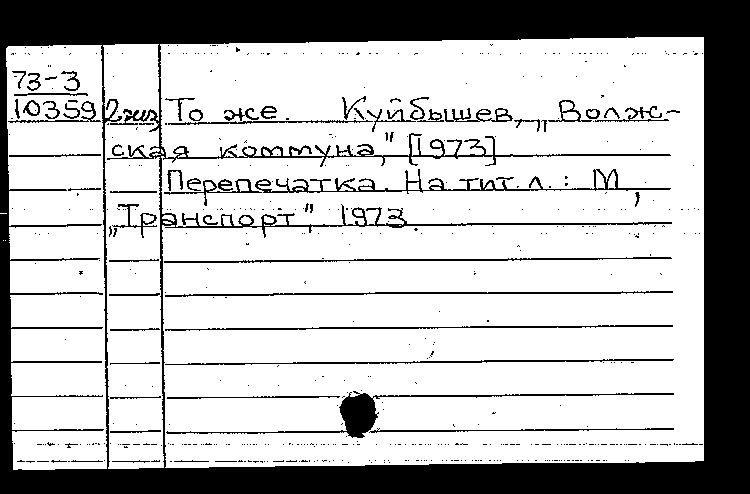 73-3
10359 2 экз То же. Куйбышев, „Волж-
ская коммуна," [1973]
Перепечатка. На тит. л.: М,
„Транспорт", 1973.